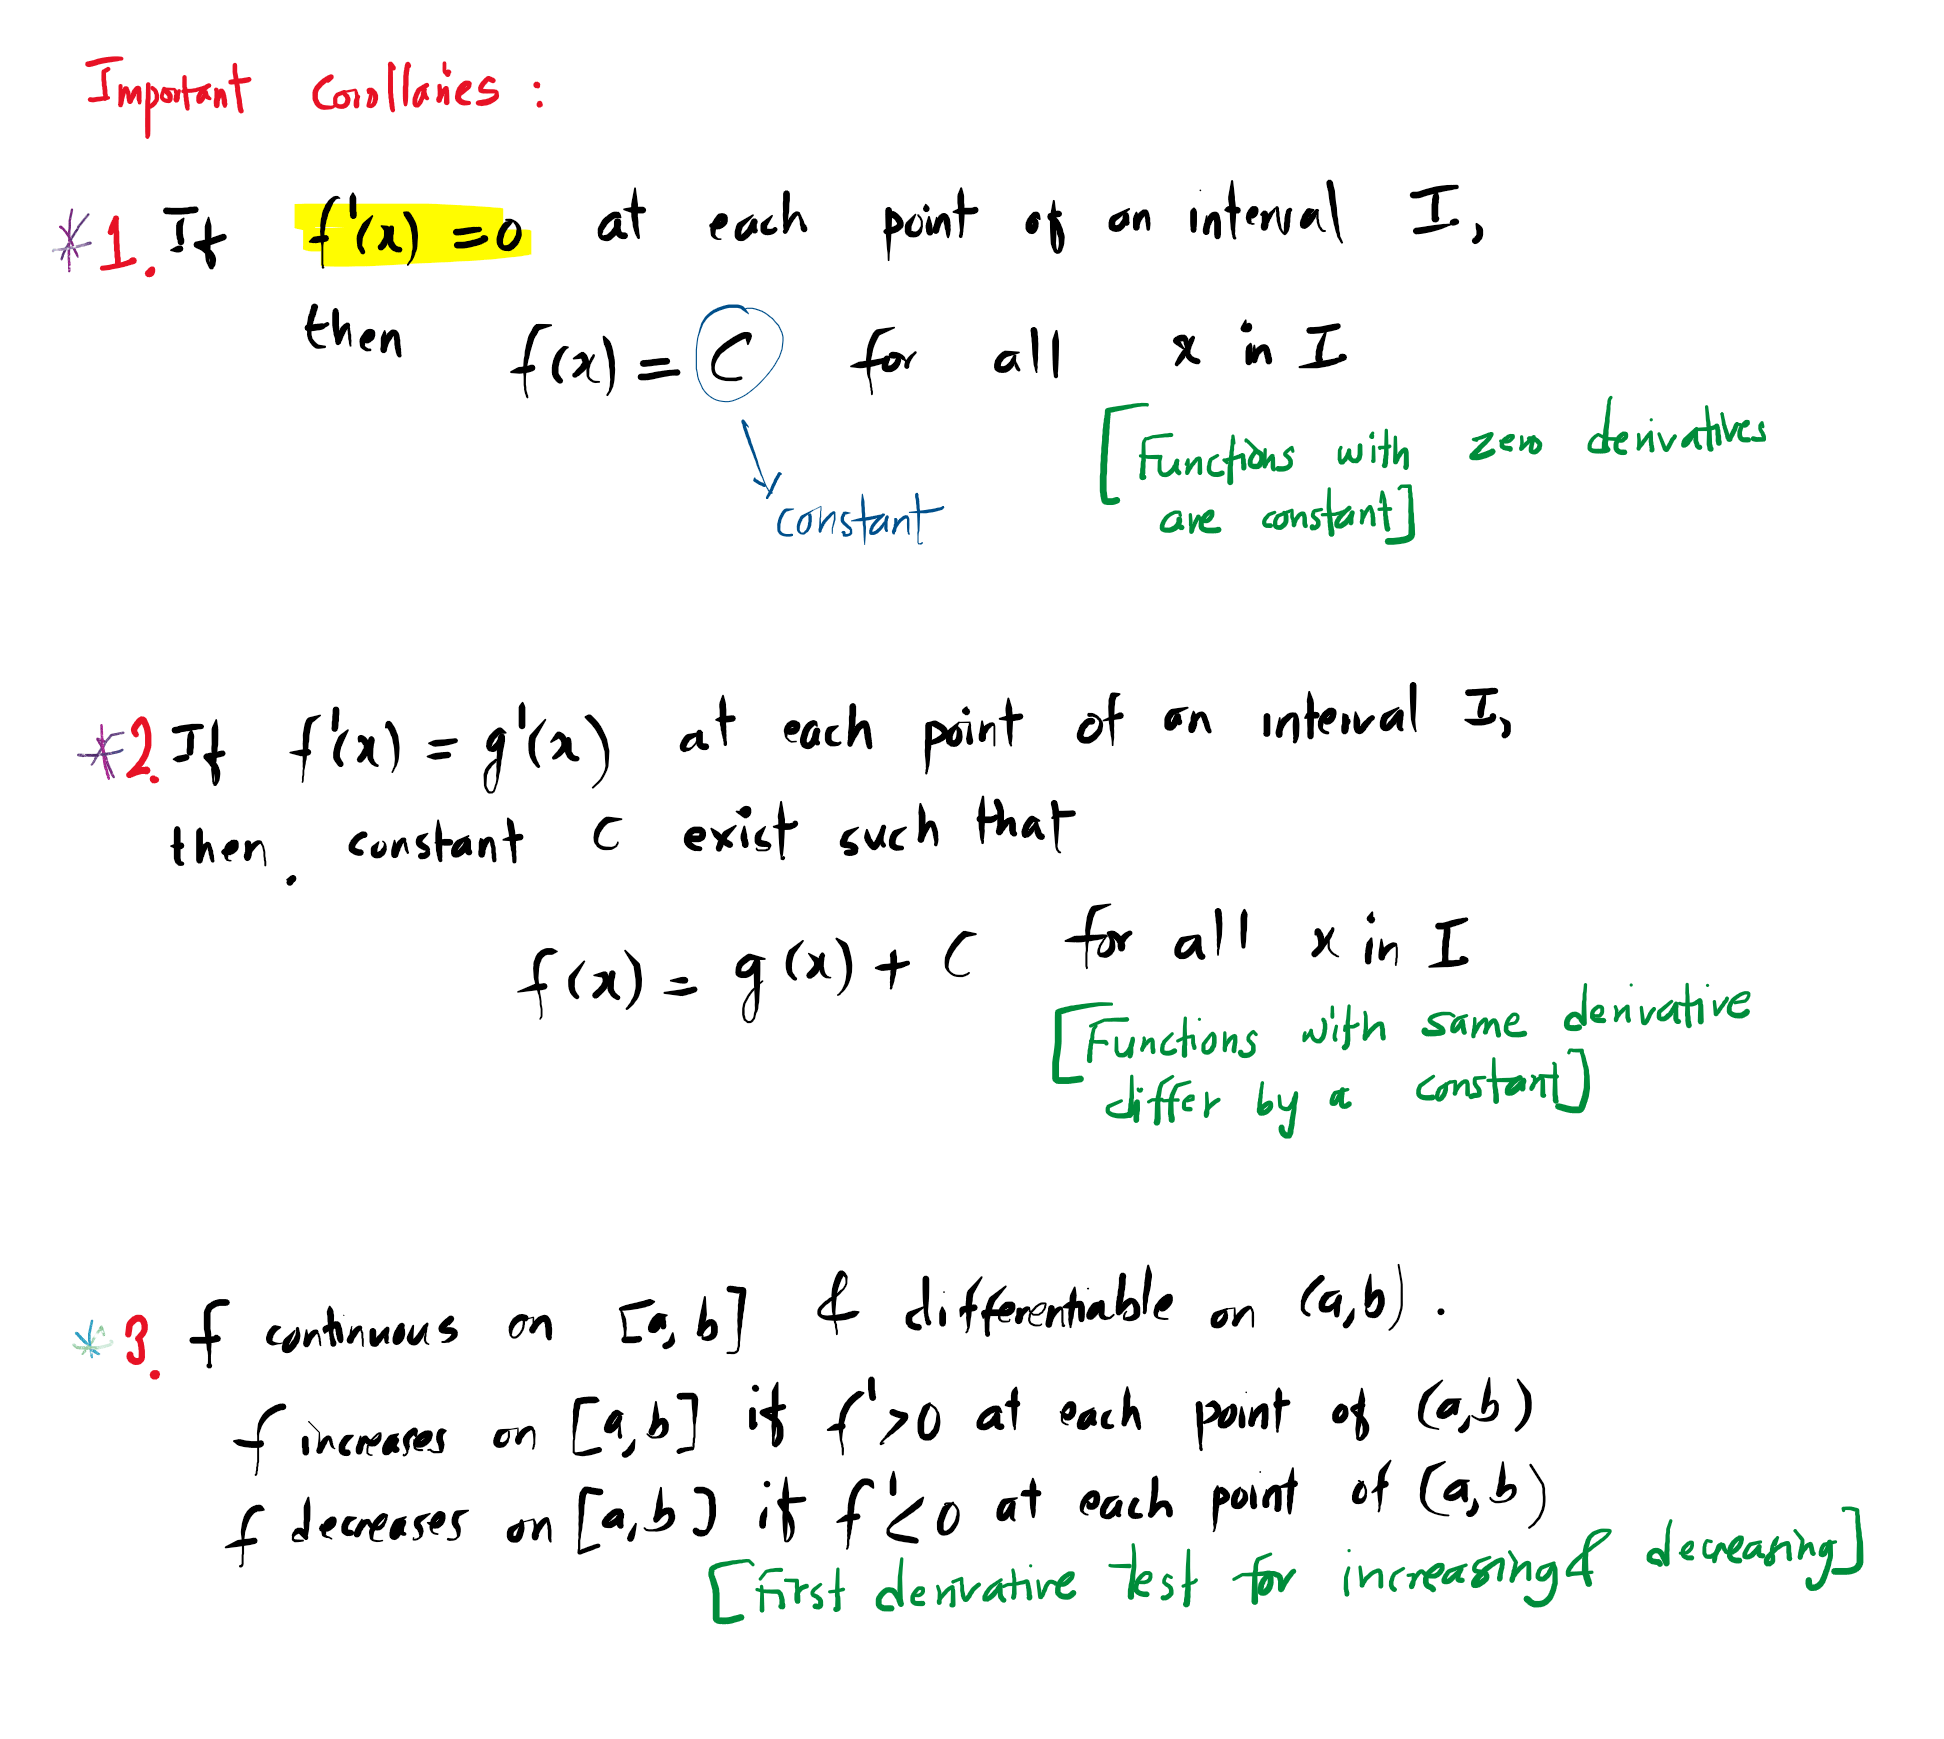 Important Corollaries :
*1. If f'(x) = 0 at each point of an interval I,
then f(x) = C for all x in I
constant
[Functions with zero derivatives
are constant]
*2. If f'(x) = g'(x) at each point of an interval I,
then, constant C exist such that
f(x) = g(x) + C for all x in I
[Functions with same derivative
differ by a constant]
*3. f continuous on [a, b] & differentiable on (a,b).
f increases on [a,b] if f'>0 at each point of (a,b)
f decreases on [a,b] if f'<0 at each point of (a,b)
[First derivative test for increasing & decreasing]